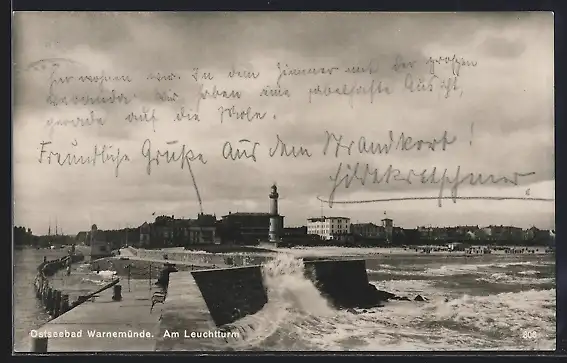 hier wohnen wir. In dem Zimmer mit der großen
Veranda. Wir haben eine fabelhafte Aussicht,
gerade auf die Mole.
Freundliche Grüße aus dem Strandkorb!
Hilde Kretschmer
Ostseebad Warnemünde. Am Leuchtturm
808